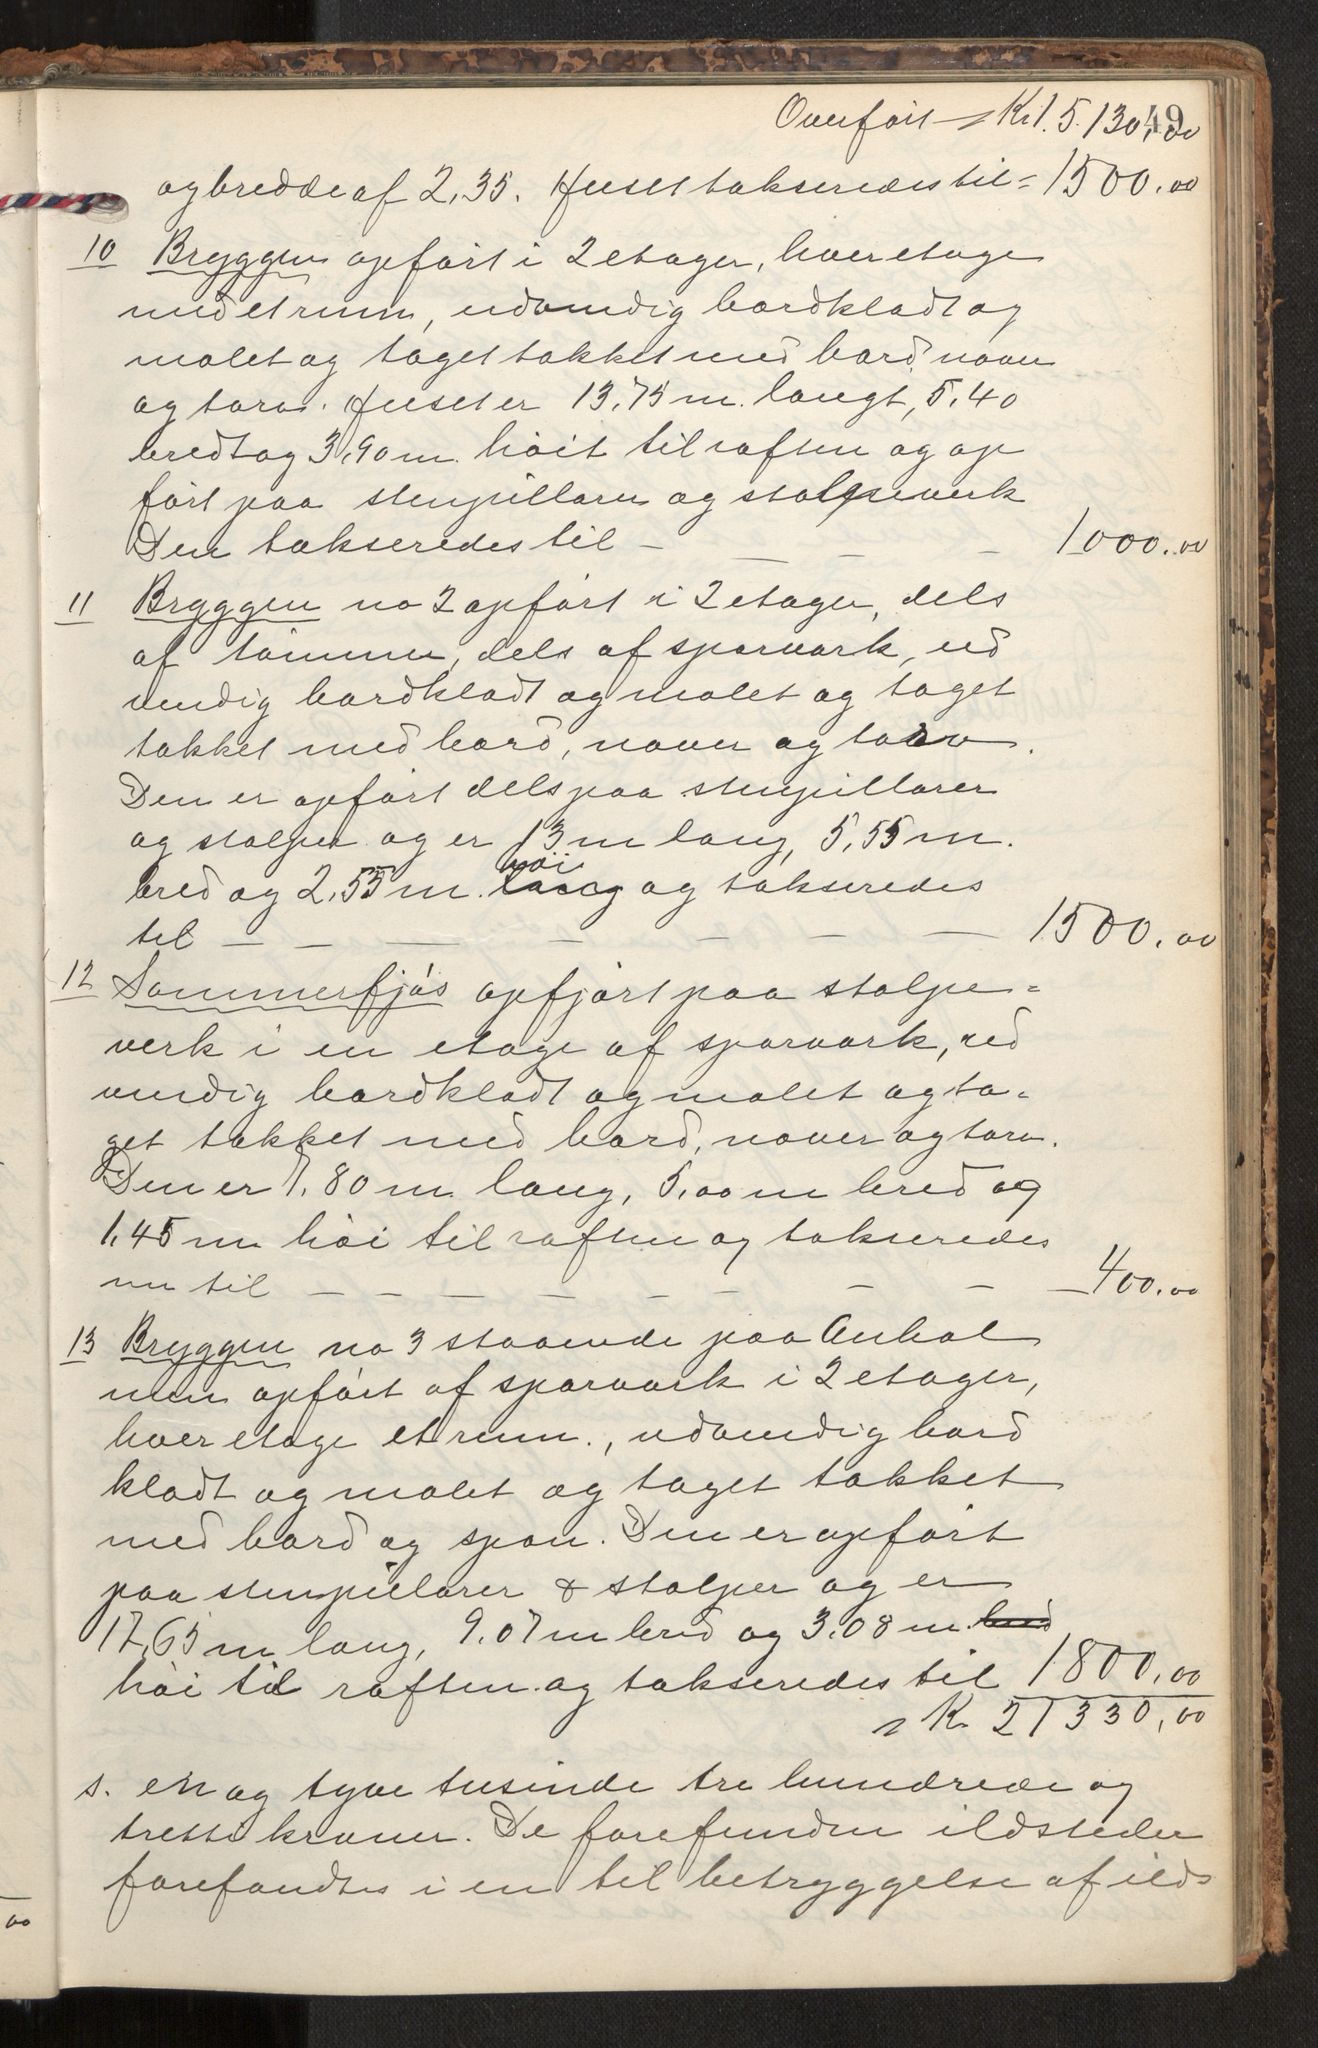 Overført Kr. 15.130,00
49
og bredde af 2,35. Huset takseredes til = 1500.00
10 Bryggen opført i 2 etager, hver etage
med et rum, udvendig bordklædt og
malet og taget tækket med bord, næver
og torv. Huset er 13,75 m. langt, 5,40
bredt og 3,90 m. høit til raften og op
ført paa stenpillarer og stolpeverk
Den takseredes til — — — — 1000.00
11 Bryggen no 2 opført i 2 etager, dels
af tømmer, dels af sparværk, ud
vendig bordklædt og malet og taget
tækket med bord, næver og torv.
Den er opført dels paa stenpillarer
og stolper og er 13 m lang, 5,55 m.
bred og 2,55 m. høi lang og takseredes
til — — — — — — — 1500.00
12 Sommerfjøs opfjørt paa stolpe=
verk i en etage af sparværk, ud
vendig bordklædt og malet og ta=
get tækket med bord, næver og torv.
Den er 7,80 m lang, 5,00 m bred og
1,45 m høi til raften og takseredes
nu til — — — — — — — — 400.00
13 Bryggen no 3 staaende paa Anhol
men opført af sparværk i 2 etager,
hver etage et rum., udvendig bord
klædt og malet og taget tækket
med bord og spon. Den er opført
paa stenpillarer & stolper og er
17,65 m lang, 9,07 m bred og 3,08 m. bred
høi til raften og takseredes til 1800.00
Kr 21330,00
s. en og tyve tusinde tre hundrede og
tretti kroner. De forefundne ildsteder
forefandtes i en til betryggelse af ilds
00